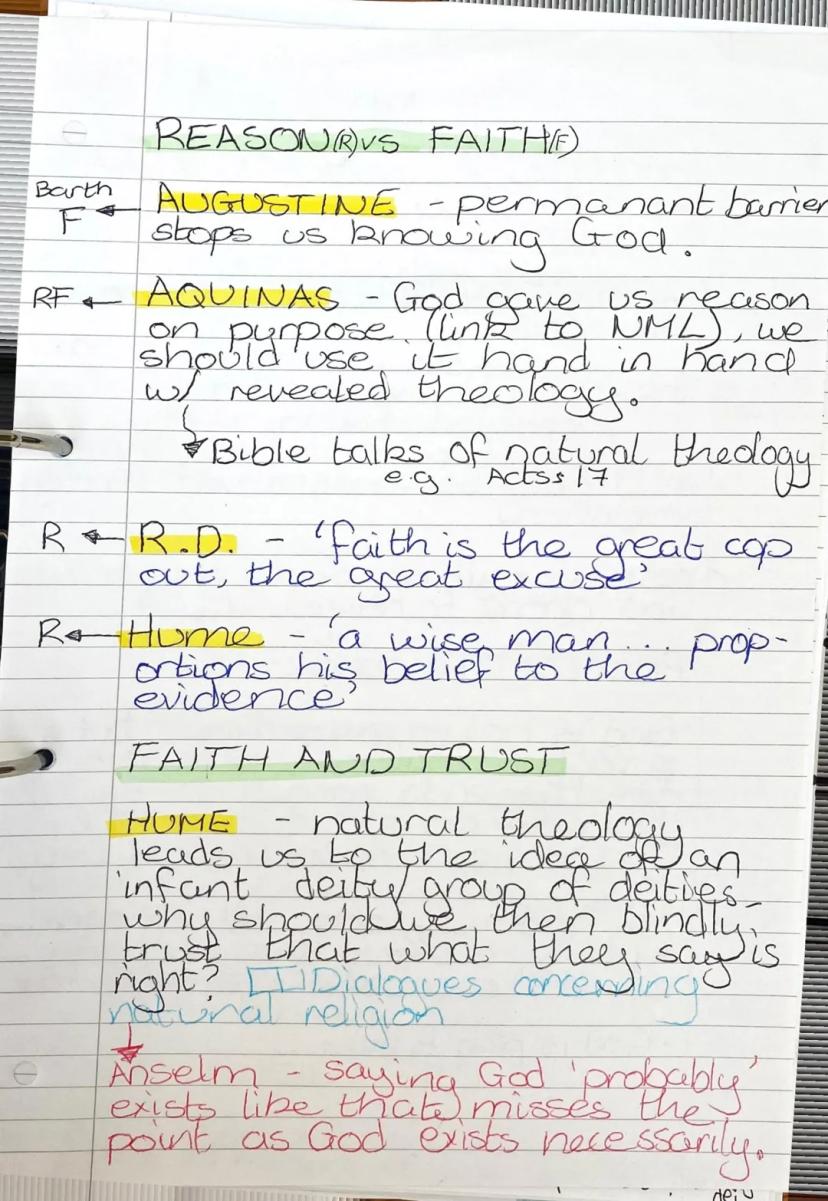 REASON(R)VS FAITH(F)
Barth
F ← AUGUSTINE - permanant barrier
stops us knowing God.
RF ← AQUINAS - God gave us reason
on purpose (link to NML), we
should use it hand in hand
w/ revealed theology.
Bible talks of natural theology
e.g. Actss 17
R ← R.D. - 'faith is the great cop
out, the great excuse'
R ← Hume - 'a wise man... prop-
ortions his belief to the
evidence'
FAITH AND TRUST
HUME - natural theology
leads us to the idea of an
infant deity/group of deities -
why should we then blindly
trust that what they say is
right? Dialogues concerning
natural religion
Anselm - saying God 'probably'
exists like that misses the
point as God exists necessarily.